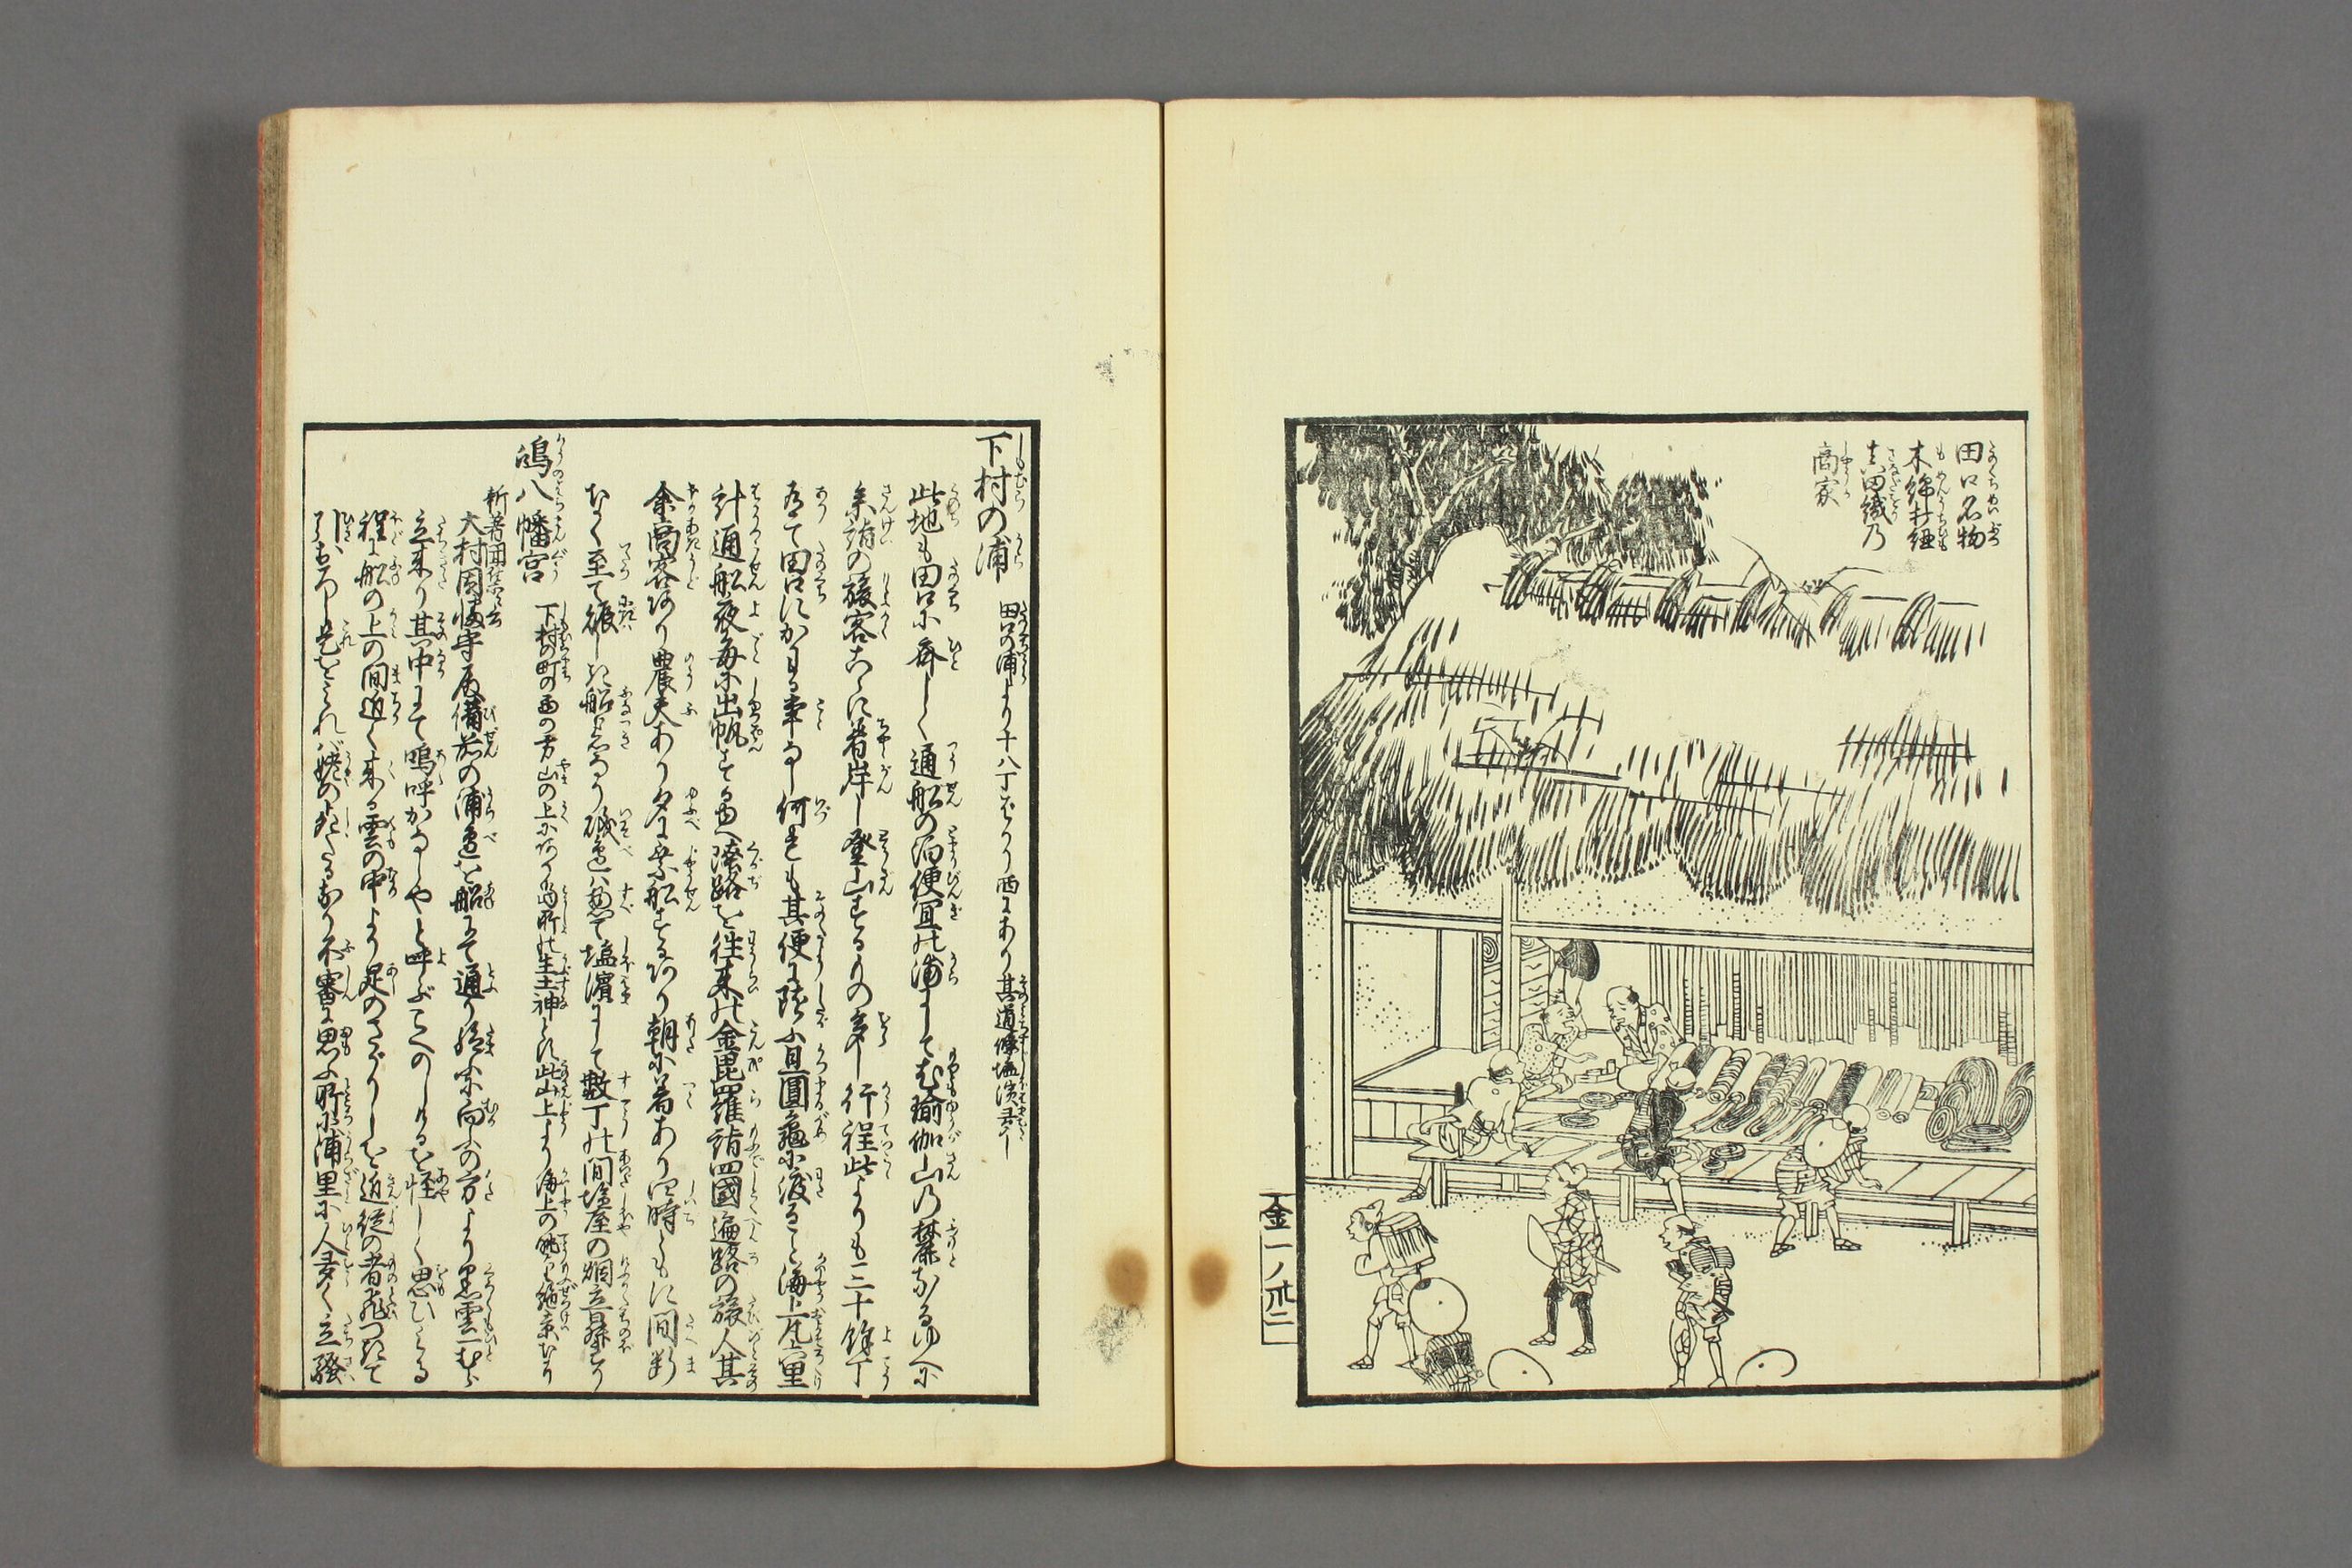 田口名物
木綿打紐
真田織乃
商家
金一ノ卅二
下村の浦 田口の浦より十八丁ばかり西にあり其道條塩濱多し
此地も田口に斉しく通船の泊便宜の浦にして瑜伽山乃麓なるゆへに
参詣の旅客こゝに着岸し登山するもの多し行程此よりも三十餘丁
有て田口にかはる事なし何れも其便に随ふ且圓亀に渡るに海上凡六里
計通船夜毎に出帆する也陸路を往来の金毘羅詣四國遍路の旅人其
余商客あり農夫あり夕に乗船するあり朝に着あり四時ともに間断
なく至て賑しき船着なり磯邉は惣て塩濱にして数丁の間塩屋の烟立昇れり
鴻八幡宮 下村の町の西の方山の上にあり当所の生土神とす此山上より海上の眺望絶景なり
新著聞集云
大村因幡守殿備前の浦邉を船にて通り給ふに向ふの方より黒雲一むら
立来り其中にて嗚呼かなしやと呼ぶこへのしけるを怪しく思ひける
程に船の上の間近く来る雲の中より足のさがりしを近従の者飛つきて
引おろし是をみれば姥の死たるなり不審に思ふ所に浦里に人多く立騒